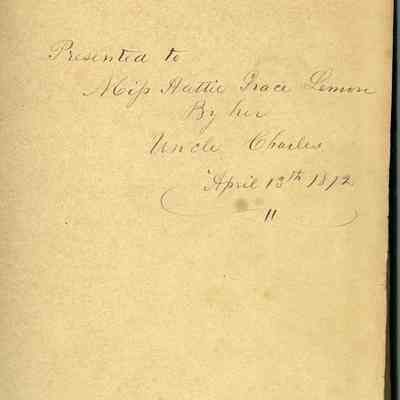 Presented to
Miss Hattie Grace Lemon
By her
Uncle Charles
April 13th 1872
"